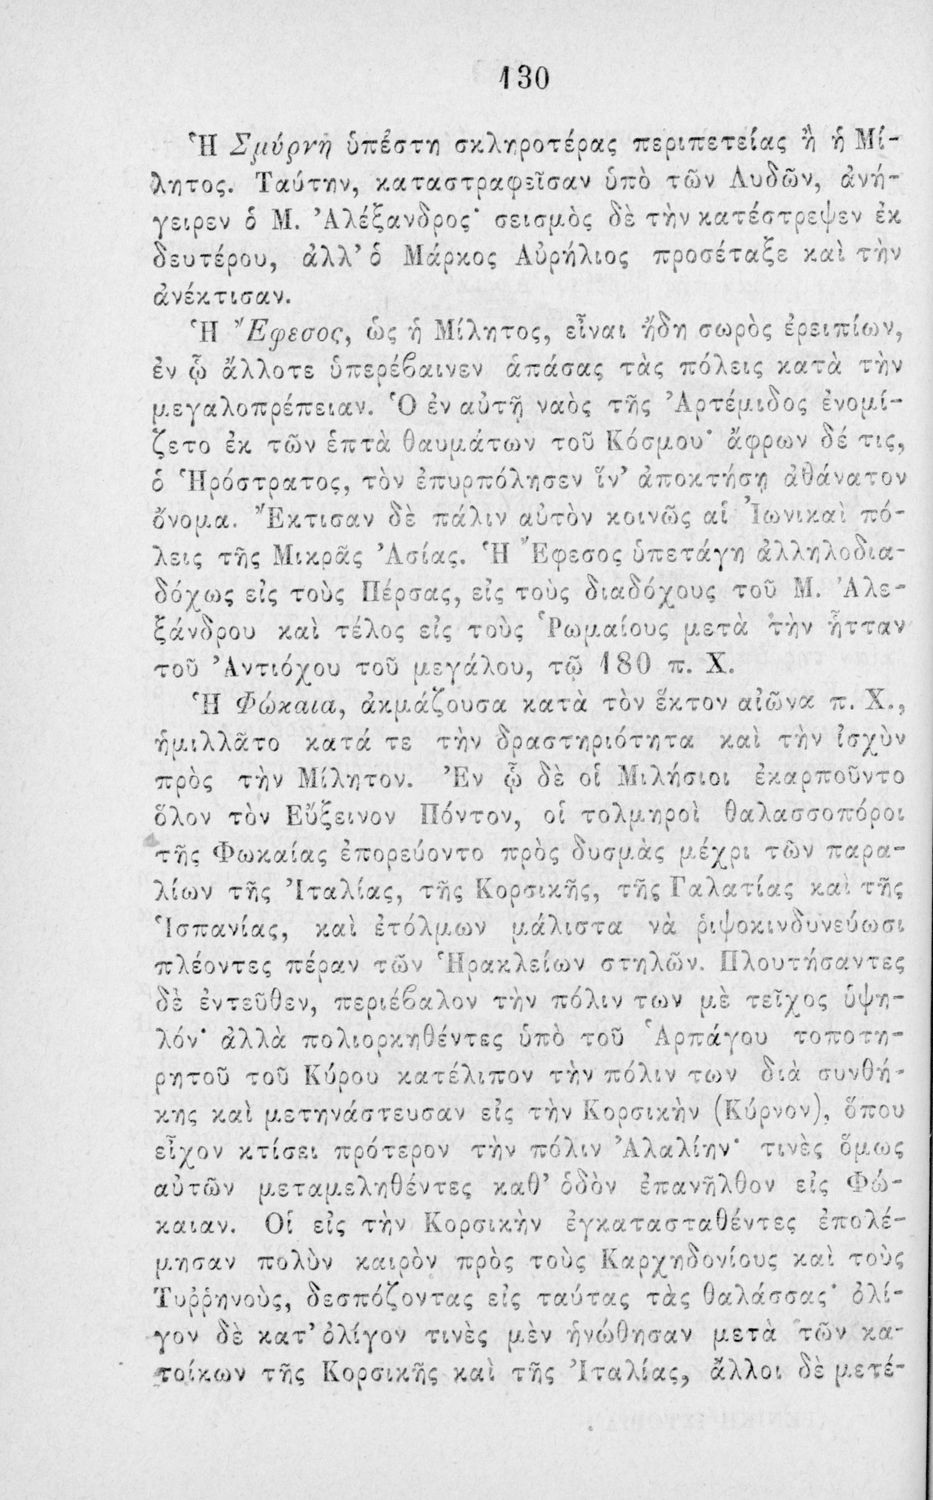 130
Ἡ Σμύρνη ὑπέστη σκληροτέρας περιπετείας ἢ ἡ Μί-
λητος. Ταύτην, καταστραφεῖσαν ὑπὸ τῶν Λυδῶν, ἀνή-
γειρεν ὁ Μ. Ἀλέξανδρος· σεισμὸς δὲ τὴν κατέστρεψεν ἐκ
δευτέρου, ἀλλ’ ὁ Μάρκος Αὐρήλιος προσέταξε καὶ τὴν
ἀνέκτισαν.
Ἡ Ἔφεσος, ὡς ἡ Μίλητος, εἶναι ἤδη σωρὸς ἐρειπίων,
ἐν ᾧ ἄλλοτε ὑπερέβαινεν ἁπάσας τὰς πόλεις κατὰ τὴν
μεγαλοπρέπειαν. Ὁ ἐν αὐτῇ ναὸς τῆς Ἀρτέμιδος ἐνομί-
ζετο ἐκ τῶν ἑπτὰ θαυμάτων τοῦ Κόσμου· ἄφρων δέ τις,
ὁ Ἡρόστρατος, τὸν ἐπυρπόλησεν ἵν’ ἀποκτήσῃ ἀθάνατον
ὄνομα. Ἔκτισαν δὲ πάλιν αὐτὸν κοινῶς αἱ Ἰωνικαὶ πό-
λεις τῆς Μικρᾶς Ἀσίας. Ἡ Ἔφεσος ὑπετάγη ἀλληλοδια-
δόχως εἰς τοὺς Πέρσας, εἰς τοὺς διαδόχους τοῦ Μ. Ἀλε-
ξάνδρου καὶ τέλος εἰς τοὺς Ῥωμαίους μετὰ τὴν ἧτταν
τοῦ Ἀντιόχου τοῦ μεγάλου, τῷ 180 π. Χ.
Ἡ Φώκαια, ἀκμάζουσα κατὰ τὸν ἕκτον αἰῶνα π. Χ.,
ἡμιλλᾶτο κατά τε τὴν δραστηριότητα καὶ τὴν ἰσχὺν
πρὸς τὴν Μίλητον. Ἐν ᾧ δὲ οἱ Μιλήσιοι ἐκαρποῦντο
ὅλον τὸν Εὔξεινον Πόντον, οἱ τολμηροὶ θαλασσοπόροι
τῆς Φωκαίας ἐπορεύοντο πρὸς δυσμὰς μέχρι τῶν παρα-
λίων τῆς Ἰταλίας, τῆς Κορσικῆς, τῆς Γαλατίας καὶ τῆς
Ἱσπανίας, καὶ ἐτόλμων μάλιστα νὰ ῥιψοκινδυνεύωσι
πλέοντες πέραν τῶν Ἡρακλείων στηλῶν. Πλουτήσαντες
δὲ ἐντεῦθεν, περιέβαλον τὴν πόλιν των μὲ τεῖχος ὑψη-
λόν· ἀλλὰ πολιορκηθέντες ὑπὸ τοῦ Ἁρπάγου τοποτη-
ρητοῦ τοῦ Κύρου κατέλιπον τὴν πόλιν των διὰ συνθή-
κης καὶ μετηνάστευσαν εἰς τὴν Κορσικὴν (Κύρνον), ὅπου
εἶχον κτίσει πρότερον τὴν πόλιν Ἀλαλίην· τινὲς ὅμως
αὐτῶν μεταμεληθέντες καθ’ ὁδὸν ἐπανῆλθον εἰς Φώ-
καιαν. Οἱ εἰς τὴν Κορσικὴν ἐγκατασταθέντες ἐπολέ-
μησαν πολὺν καιρὸν πρὸς τοὺς Καρχηδονίους καὶ τοὺς
Τυῤῥηνοὺς, δεσπόζοντας εἰς ταύτας τὰς θαλάσσας· ὀλί-
γον δὲ κατ’ ὀλίγον τινὲς μὲν ἡνώθησαν μετὰ τῶν κα-
τοίκων τῆς Κορσικῆς καὶ τῆς Ἰταλίας, ἄλλοι δὲ μετέ-